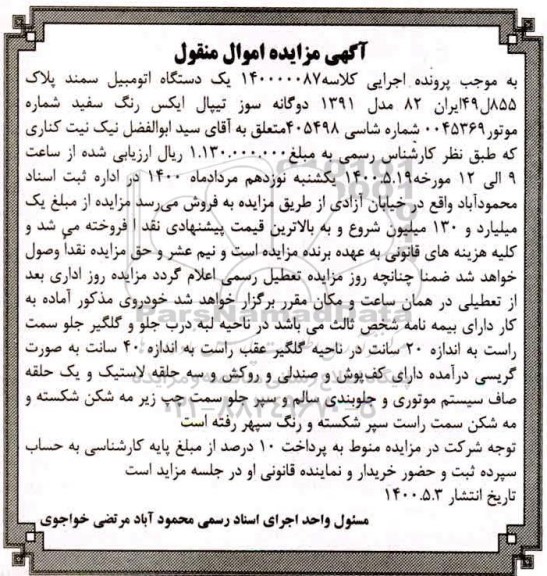 آگهی مزایده اموال منقول
به موجب پرونده اجرایی کلاسه۱۴۰۰۰۰۰۸۷ یک دستگاه اتومبیل سمند پلاک
۸۵۵ل۴۹ایران ۸۲ مدل ۱۳۹۱ دوگانه سوز تیپال ایکس رنگ سفید شماره
موتور۰۰۴۵۳۶۹ شماره شاسی ۴۰۵۴۹۸متعلق به آقای سید ابوالفضل نیک نیت کناری
که طبق نظر کارشناس رسمی به مبلغ۱.۱۳۰.۰۰۰.۰۰۰ ریال ارزیابی شده از ساعت
۹ الی ۱۲ مورخه۱۴۰۰.۵.۱۹ یکشنبه نوزدهم مردادماه ۱۴۰۰ در اداره ثبت اسناد
محمودآباد واقع در خیابان آزادی از طریق مزایده به فروش می‌رسد مزایده از مبلغ یک
میلیارد و ۱۳۰ میلیون شروع و به بالاترین قیمت پیشنهادی نقد ا فروخته می شد و
کلیه هزینه های قانونی به عهده برنده مزایده است و نیم عشر و حق مزایده نقداً وصول
خواهد شد ضمنا چنانچه روز مزایده تعطیل رسمی اعلام گردد مزایده روز اداری بعد
از تعطیلی در همان ساعت و مکان مقرر برگزار خواهد شد خودروی مذکور آماده به
کار دارای بیمه نامه شخص ثالث می باشد در ناحیه لبه درب جلو و گلگیر جلو سمت
راست به اندازه ۲۰ سانت در ناحیه گلگیر عقب راست به اندازه ۴۰ سانت به صورت
گریسی درآمده دارای کفپوش و صندلی و روکش و سه حلقه لاستیک و یک حلقه
صاف سیستم موتوری و جلوبندی سالم و سپر جلو سمت چپ زیر مه شکن شکسته و
مه شکن سمت راست سپر شکسته و رنگ سپهر رفته است
توجه شرکت در مزایده منوط به پرداخت ۱۰ درصد از مبلغ پایه کارشناسی به حساب
سپرده ثبت و حضور خریدار و نماینده قانونی او در جلسه مزاید است
تاریخ انتشار ۱۴۰۰.۵.۳
مسئول واحد اجرای اسناد رسمی محمود آباد مرتضی خواجوی
ParsNamadData
۰۲۱-۸۸۳۴۹۶۷۰-۵